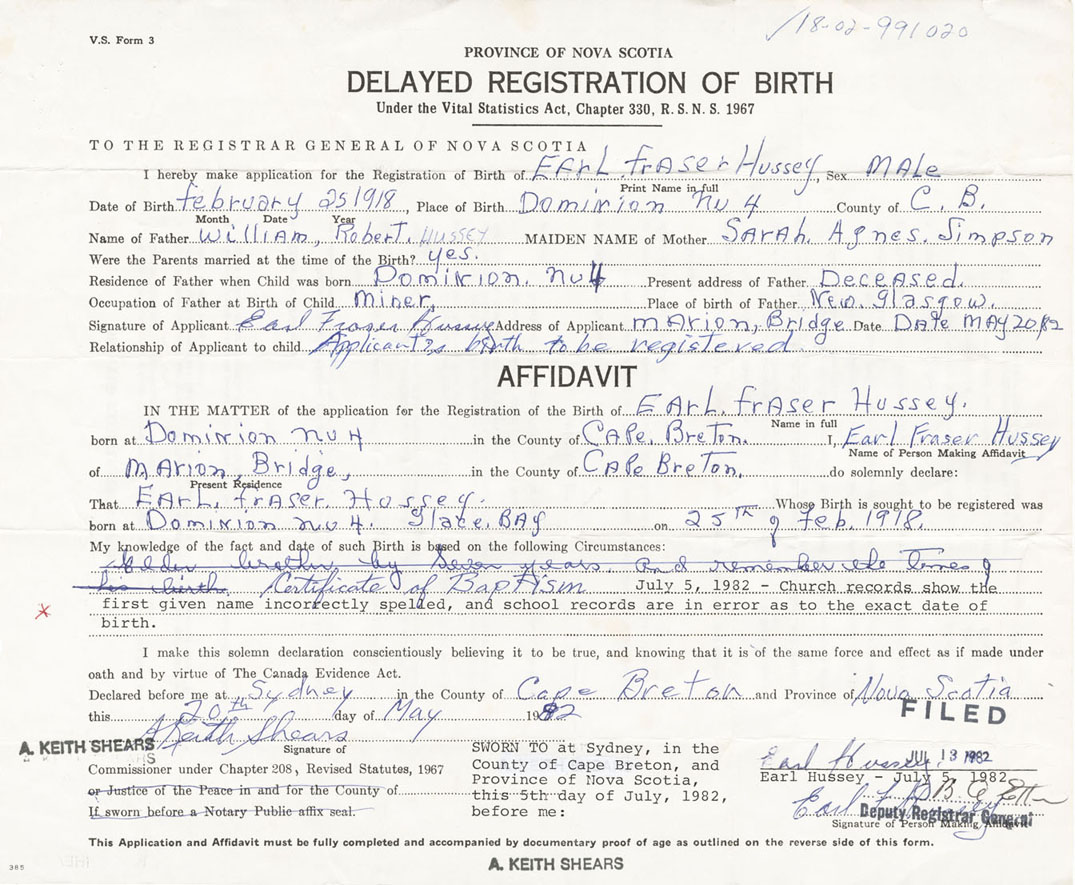 18-02-991020
V.S. Form 3
PROVINCE OF NOVA SCOTIA
DELAYED REGISTRATION OF BIRTH
Under the Vital Statistics Act, Chapter 330, R.S.N.S. 1967
TO THE REGISTRAR GENERAL OF NOVA SCOTIA
I hereby make application for the Registration of Birth of EArL. frAser Hussey, Sex MALe
Print Name in full
Date of Birth february 25 1918, Place of Birth Dominion nu 4 County of C. B.
Month Date Year
Name of Father William, Robert. HUSSEY MAIDEN NAME of Mother SArAh. Agnes. Simpson
Were the Parents married at the time of the Birth? yes.
Residence of Father when Child was born Dominion. nu 4 Present address of Father DeceAsed.
Occupation of Father at Birth of Child miner, Place of birth of Father New. glasgow.
Signature of Applicant Earl Fraser Hussey Address of Applicant mArion, Bridge Date DAte MAY 20, 82
Relationship of Applicant to child Applicant's birth to be registered.
AFFIDAVIT
IN THE MATTER of the application for the Registration of the Birth of EArL. frAser Hussey.
Name in full
born at Dominion nu 4 in the County of CAPe. Breton. I, Earl Fraser Hussey
Name of Person Making Affidavit
of mArion, Bridge, in the County of CAPe Breton. do solemnly declare:
Present Residence
That EArL. frAser. Hussey. Whose Birth is sought to be registered was
born at Dominion nu 4. glace. BAy on 25TH of Feb. 1918.
My knowledge of the fact and date of such Birth is based on the following Circumstances:
brother by seven years. And remember the time of
his birth. Certificate of Baptism July 5, 1982 - Church records show the
first given name incorrectly spelled, and school records are in error as to the exact date of
birth.
I make this solemn declaration conscientiously believing it to be true, and knowing that it is of the same force and effect as if made under
oath and by virtue of The Canada Evidence Act.
Declared before me at Sydney in the County of Cape Breton and Province of Nova Scotia
FILED
this 20th day of May 1982
A Keith Shears
A. KEITH SHEARS
Signature of
Commissioner under Chapter 208, Revised Statutes, 1967
or Justice of the Peace in and for the County of
If sworn before a Notary Public affix seal.
SWORN TO at Sydney, in the
County of Cape Breton, and
Province of Nova Scotia,
this 5th day of July, 1982,
before me:
Earl Hussey JUL 13 1982
Earl Hussey - July 5, 1982
Deputy Registrar General
Signature of Person Making Affidavit
This Application and Affidavit must be fully completed and accompanied by documentary proof of age as outlined on the reverse side of this form.
A. KEITH SHEARS
385